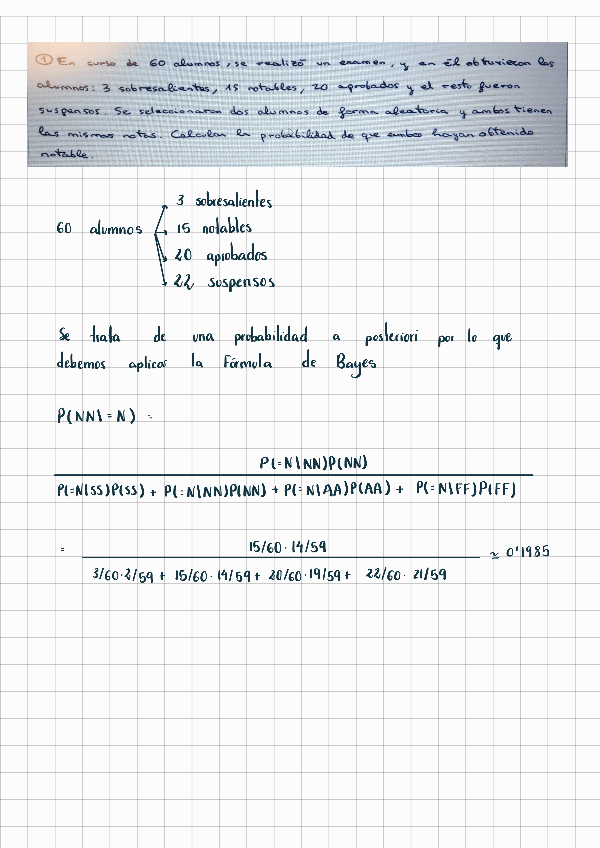 ① En curso de 60 alumnos, se realizó un examen, y en él obtuvieron los
alumnos: 3 sobresalientes, 15 notables, 20 aprobados y el resto fueron
suspensos. Se seleccionaron dos alumnos de forma aleatoria y ambos tienen
las mismas notas. Calcular la probabilidad de que ambos hayan obtenido
notable.
3 sobresalientes
60 alumnos 15 notables
20 aprobados
22 suspensos
Se trata de una probabilidad a posteriori por lo que
debemos aplicar la Fórmula de Bayes
P(NN\=N) =
P(=N\NN)P(NN)
P(=N\SS)P(SS) + P(=N\NN)P(NN) + P(=N\AA)P(AA) + P(=N\FF)P(FF)
15/60 · 14/59
= ≃ 0'1985
3/60·2/59 + 15/60·14/59 + 20/60·19/59 + 22/60· 21/59